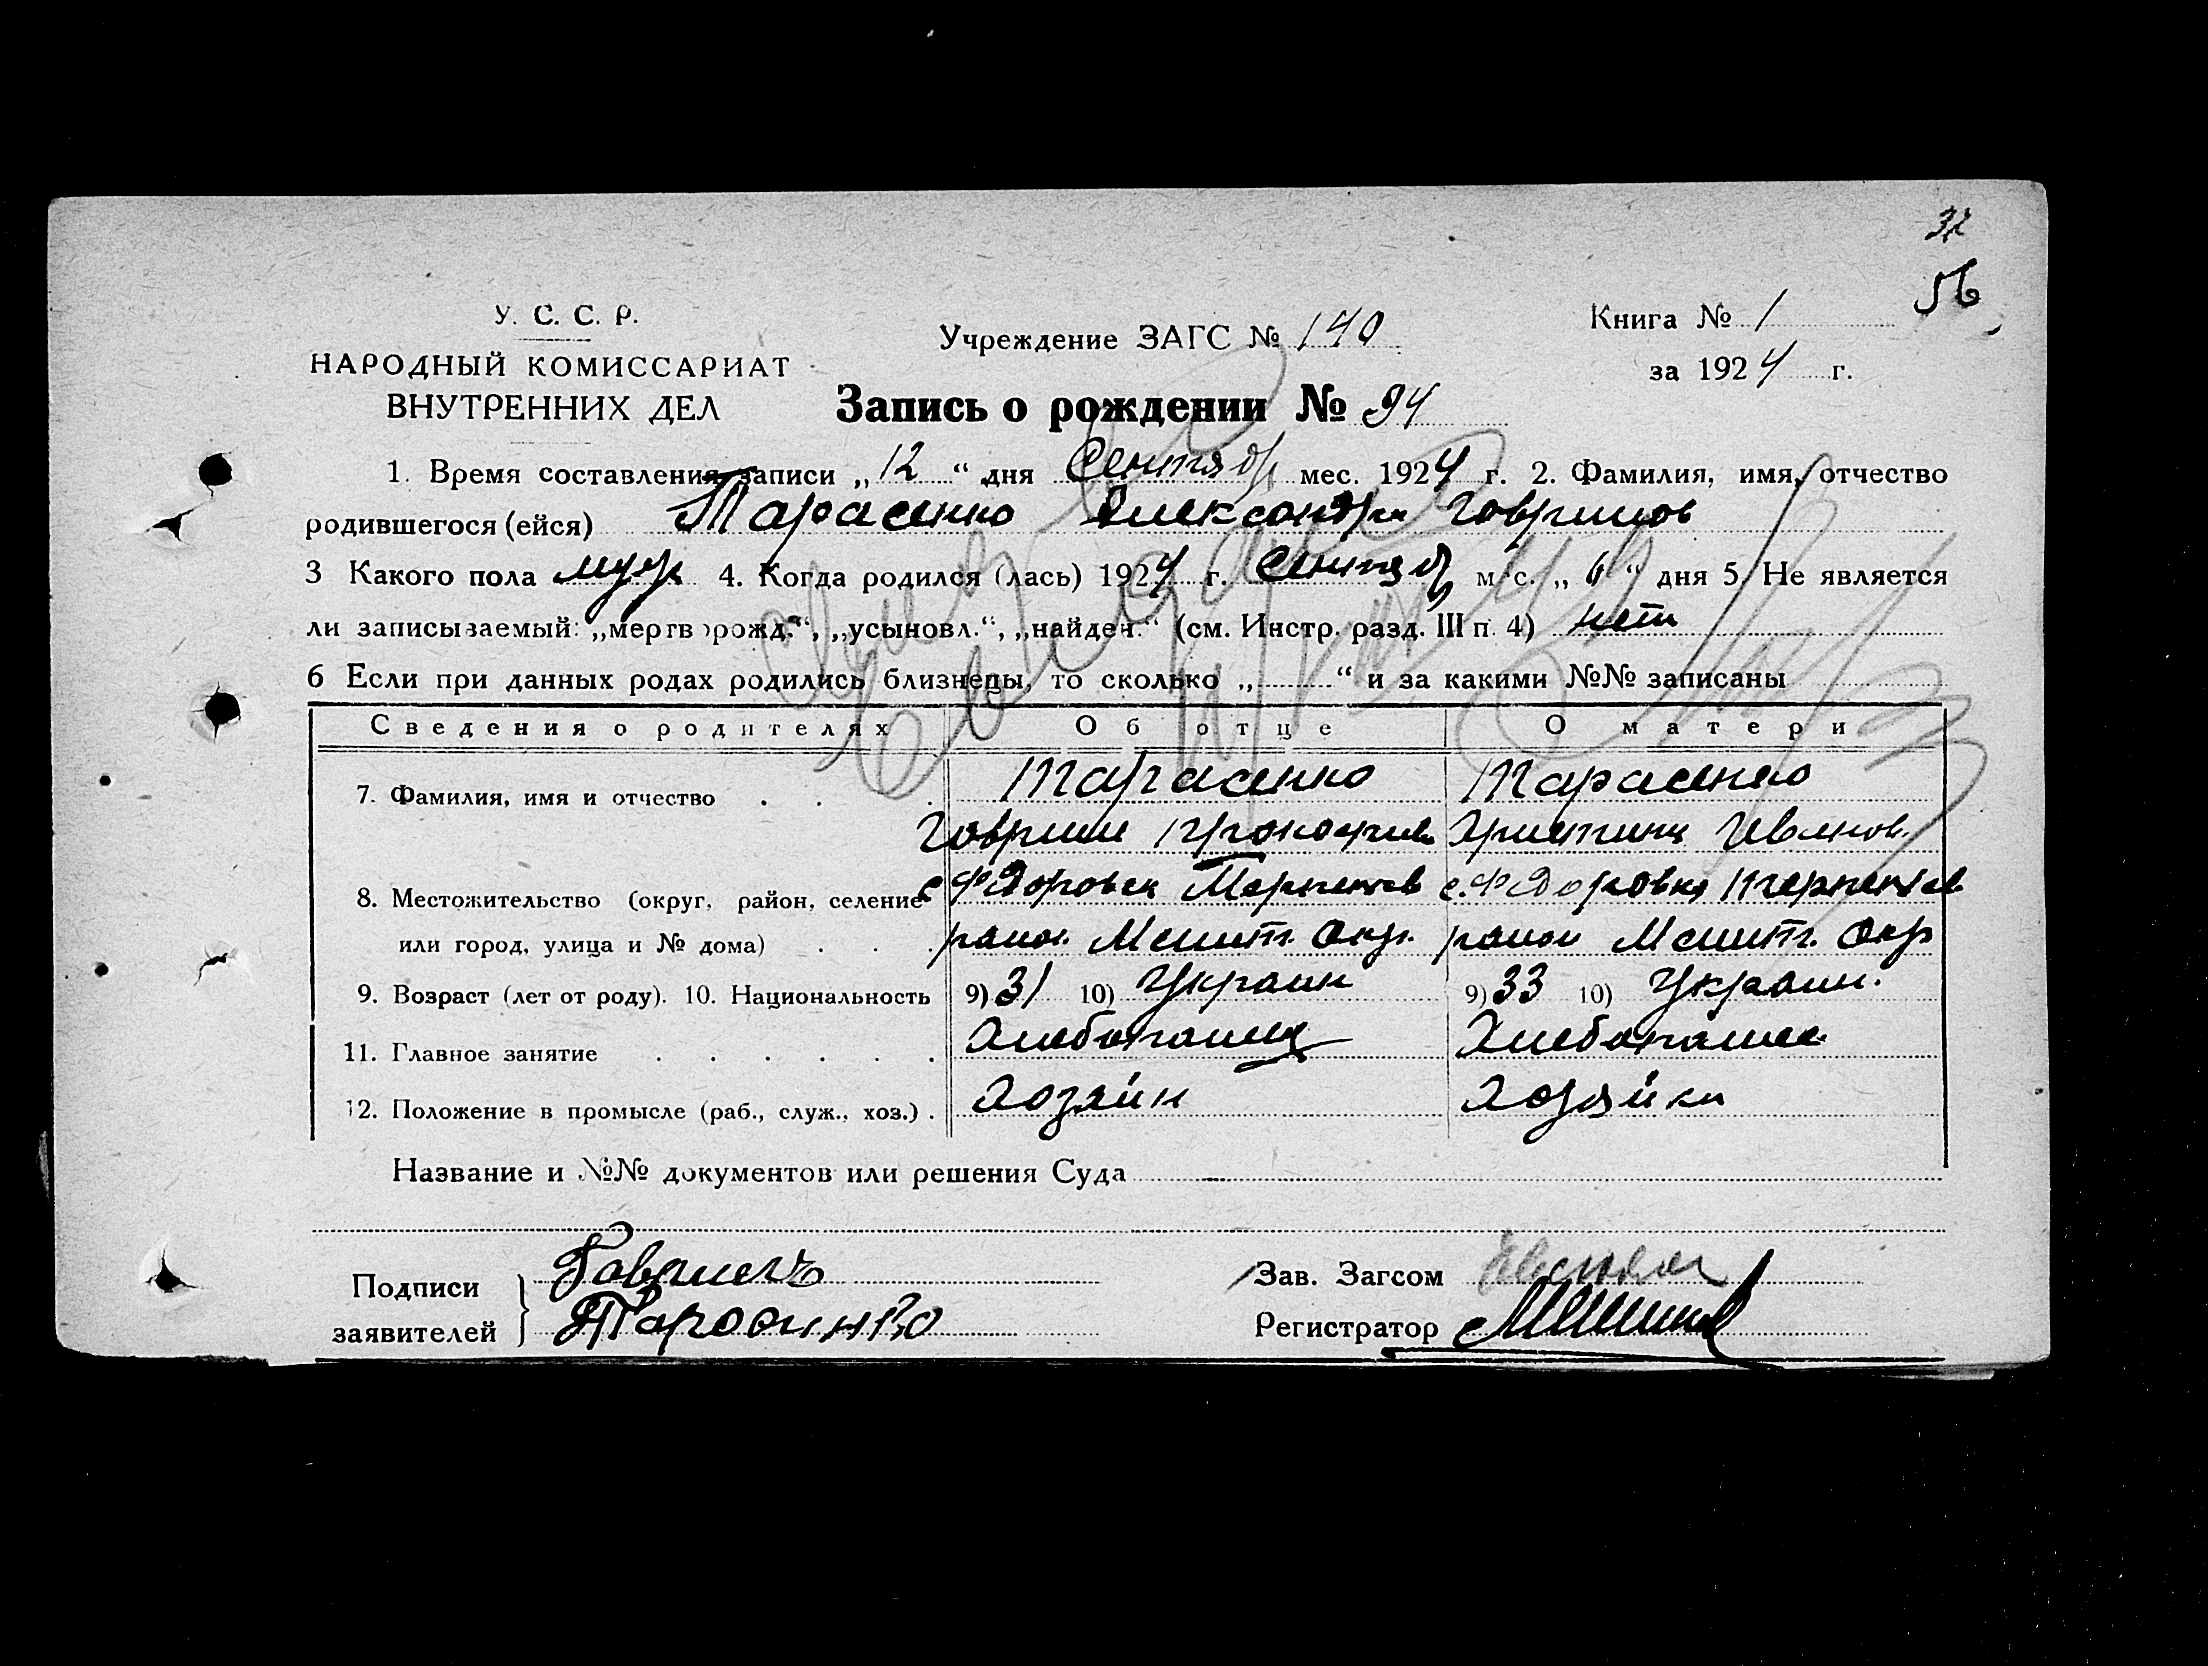 32
56
У. С. С. Р.
НАРОДНЫЙ КОМИССАРИАТ
ВНУТРЕННИХ ДЕЛ
Учреждение ЗАГС № 140
Книга № 1
за 1924 г.
Запись о рождении № 94
1. Время составления записи „12“ дня Сентяб мес. 1924 г. 2. Фамилия, имя, отчество
родившегося (ейся) Тарасенко Александр Гаврилов
3 Какого пола муж 4. Когда родился (лась) 1924 г. Сентяб мес. „6“ дня 5. Не является
ли записываемый: „мертворожд.“, „усыновл.“, „найден.“ (см. Инстр. разд. III п. 4) нет
6 Если при данных родах родились близнецы, то сколько „ “ и за какими №№ записаны
Сведения о родителях Об отце О матери
7. Фамилия, имя и отчество Тарасенко Тарасенко
Гаврил Прокофиев Христина Иванов.
8. Местожительство (округ, район, селение с. Фдоровка Терпенев с. Фдоровка Терпенев
или город, улица и № дома) район. Мелит. Окр. район Мелит. Окр
9. Возраст (лет от роду). 10. Национальность 9) 31 10) Украин 9) 33 10) Украин.
11. Главное занятие Хлебопашец Хлебопашес
12. Положение в промысле (раб., служ., хоз.) Хозяин Хозяйка
Название и №№ документов или решения Суда
Подписи заявителей Гаврилъ
Таросинко
Зав. Загсом
Регистратор